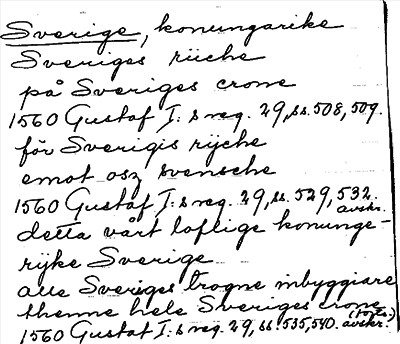 Sverige, konungarike
Sveriges rüche
på Sveriges crone
1560 Gustaf I:s reg. 29, ss. 508, 509.
för Sverigis rijche
emot osz svensche
1560 Gustaf I:s reg. 29, ss. 529, 532.
avskr.
detta vårt loflige konunge-
rijke Sverige
alle Sveriges trogne inbyggiare
thenne hele Sveriges crone
1560 Gustaf I:s reg. 29, ss. 535, 540. avskr.